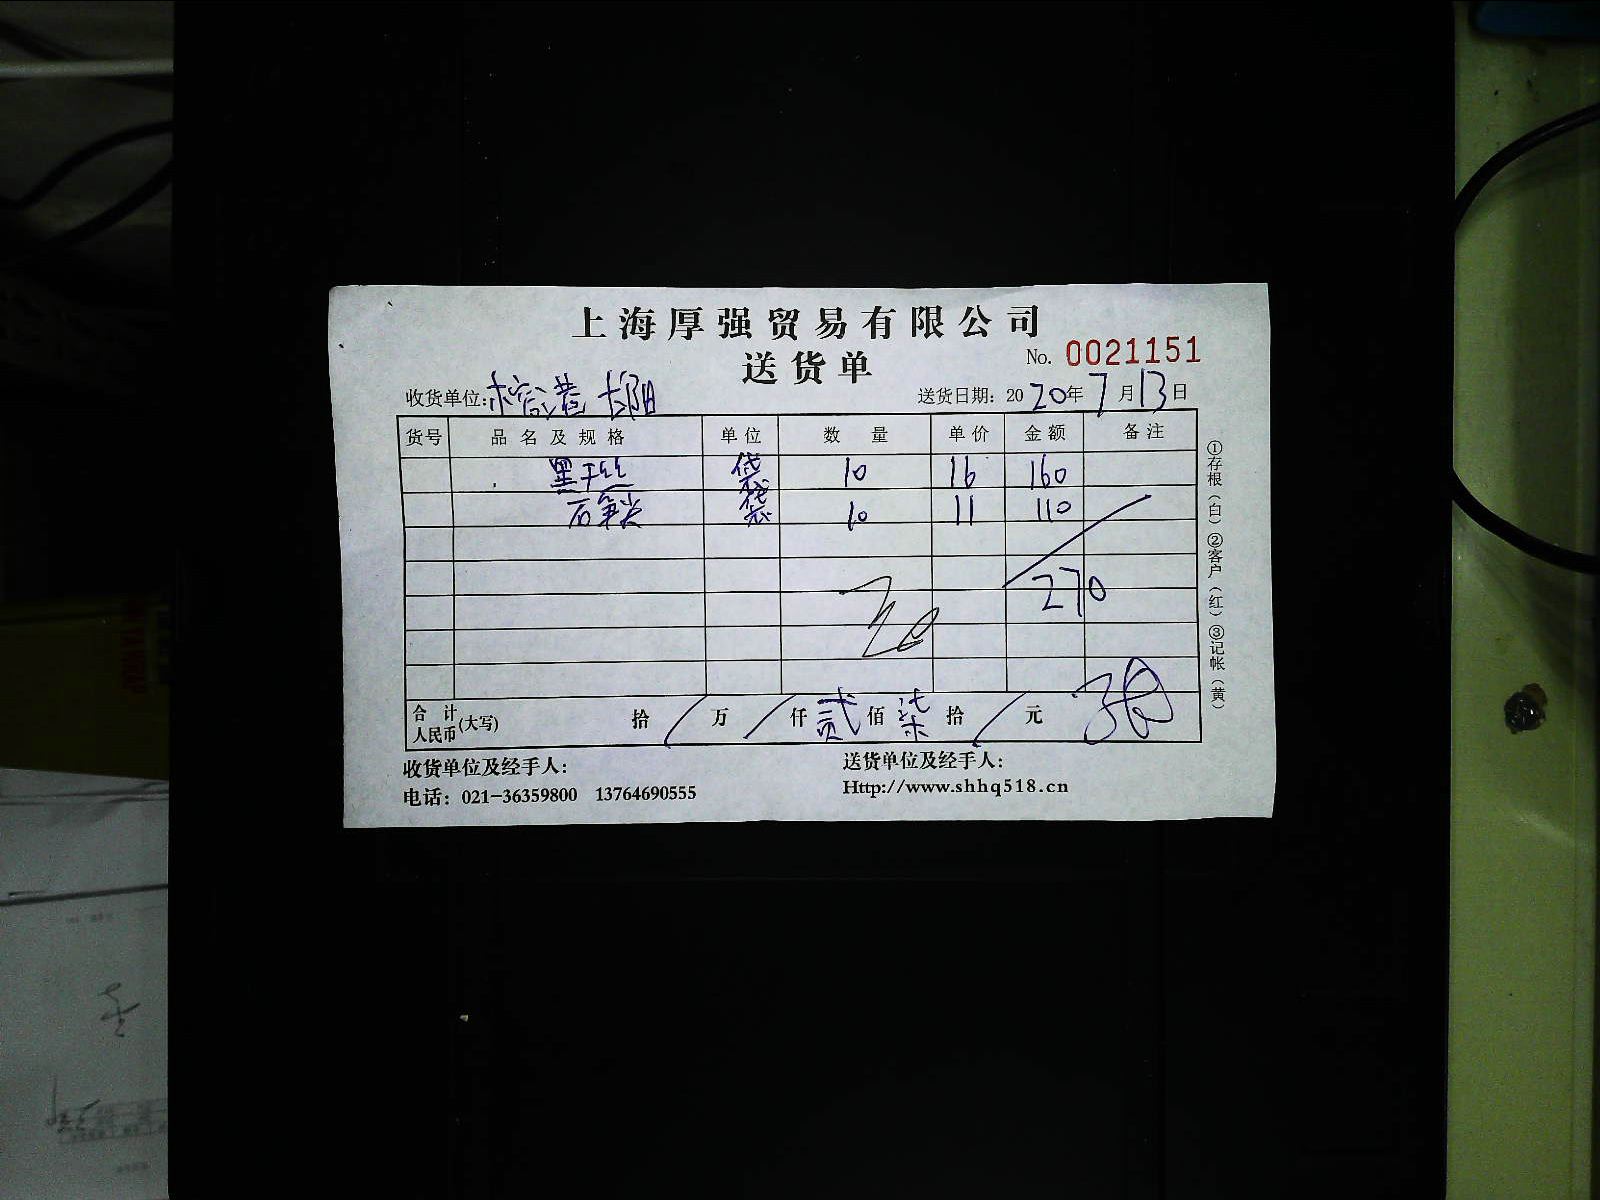 上海厚强贸易有限公司
送货单
No. 0021151
收货单位: 长阳
送货日期: 2020年7月13日
货号 品名及规格 单位 数量 单价 金额 备注
黑干丝 袋 10 16 160
石笋尖 袋 10 11 110
270
合计人民币(大写) 拾 / 万 / 仟 贰 佰 柒 拾 / 元
收货单位及经手人:
送货单位及经手人:
电话: 021-36359800 13764690555
Http://www.shhq518.cn
①存根(白)②客户(红)③记帐(黄)